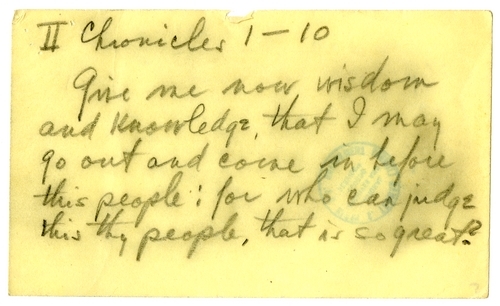 II Chronicles 1-10
Give me now wisdom
and knowledge, that I may
go out and come in before
this people: for who can judge
this thy people, that is so great?